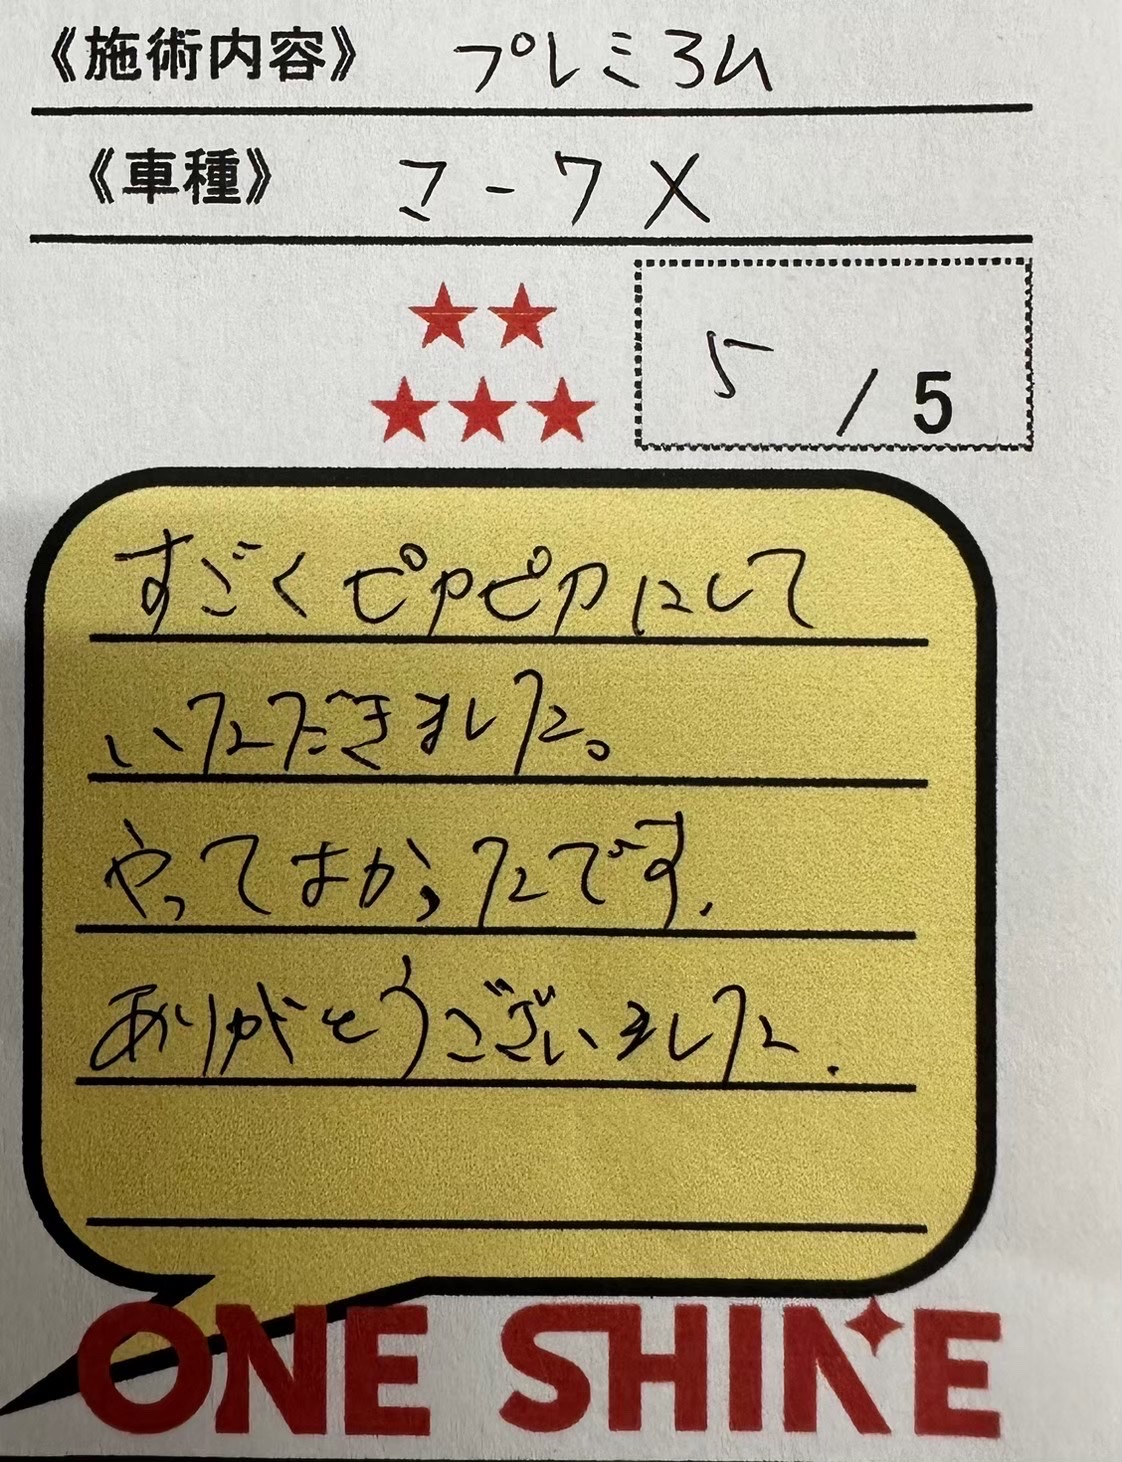 《施術内容》 プレミヨム
《車種》 マークX
5 / 5
すごくピカピカにして
いただきました。
やってよかったです.
ありがとうございました.
ONE SHINE